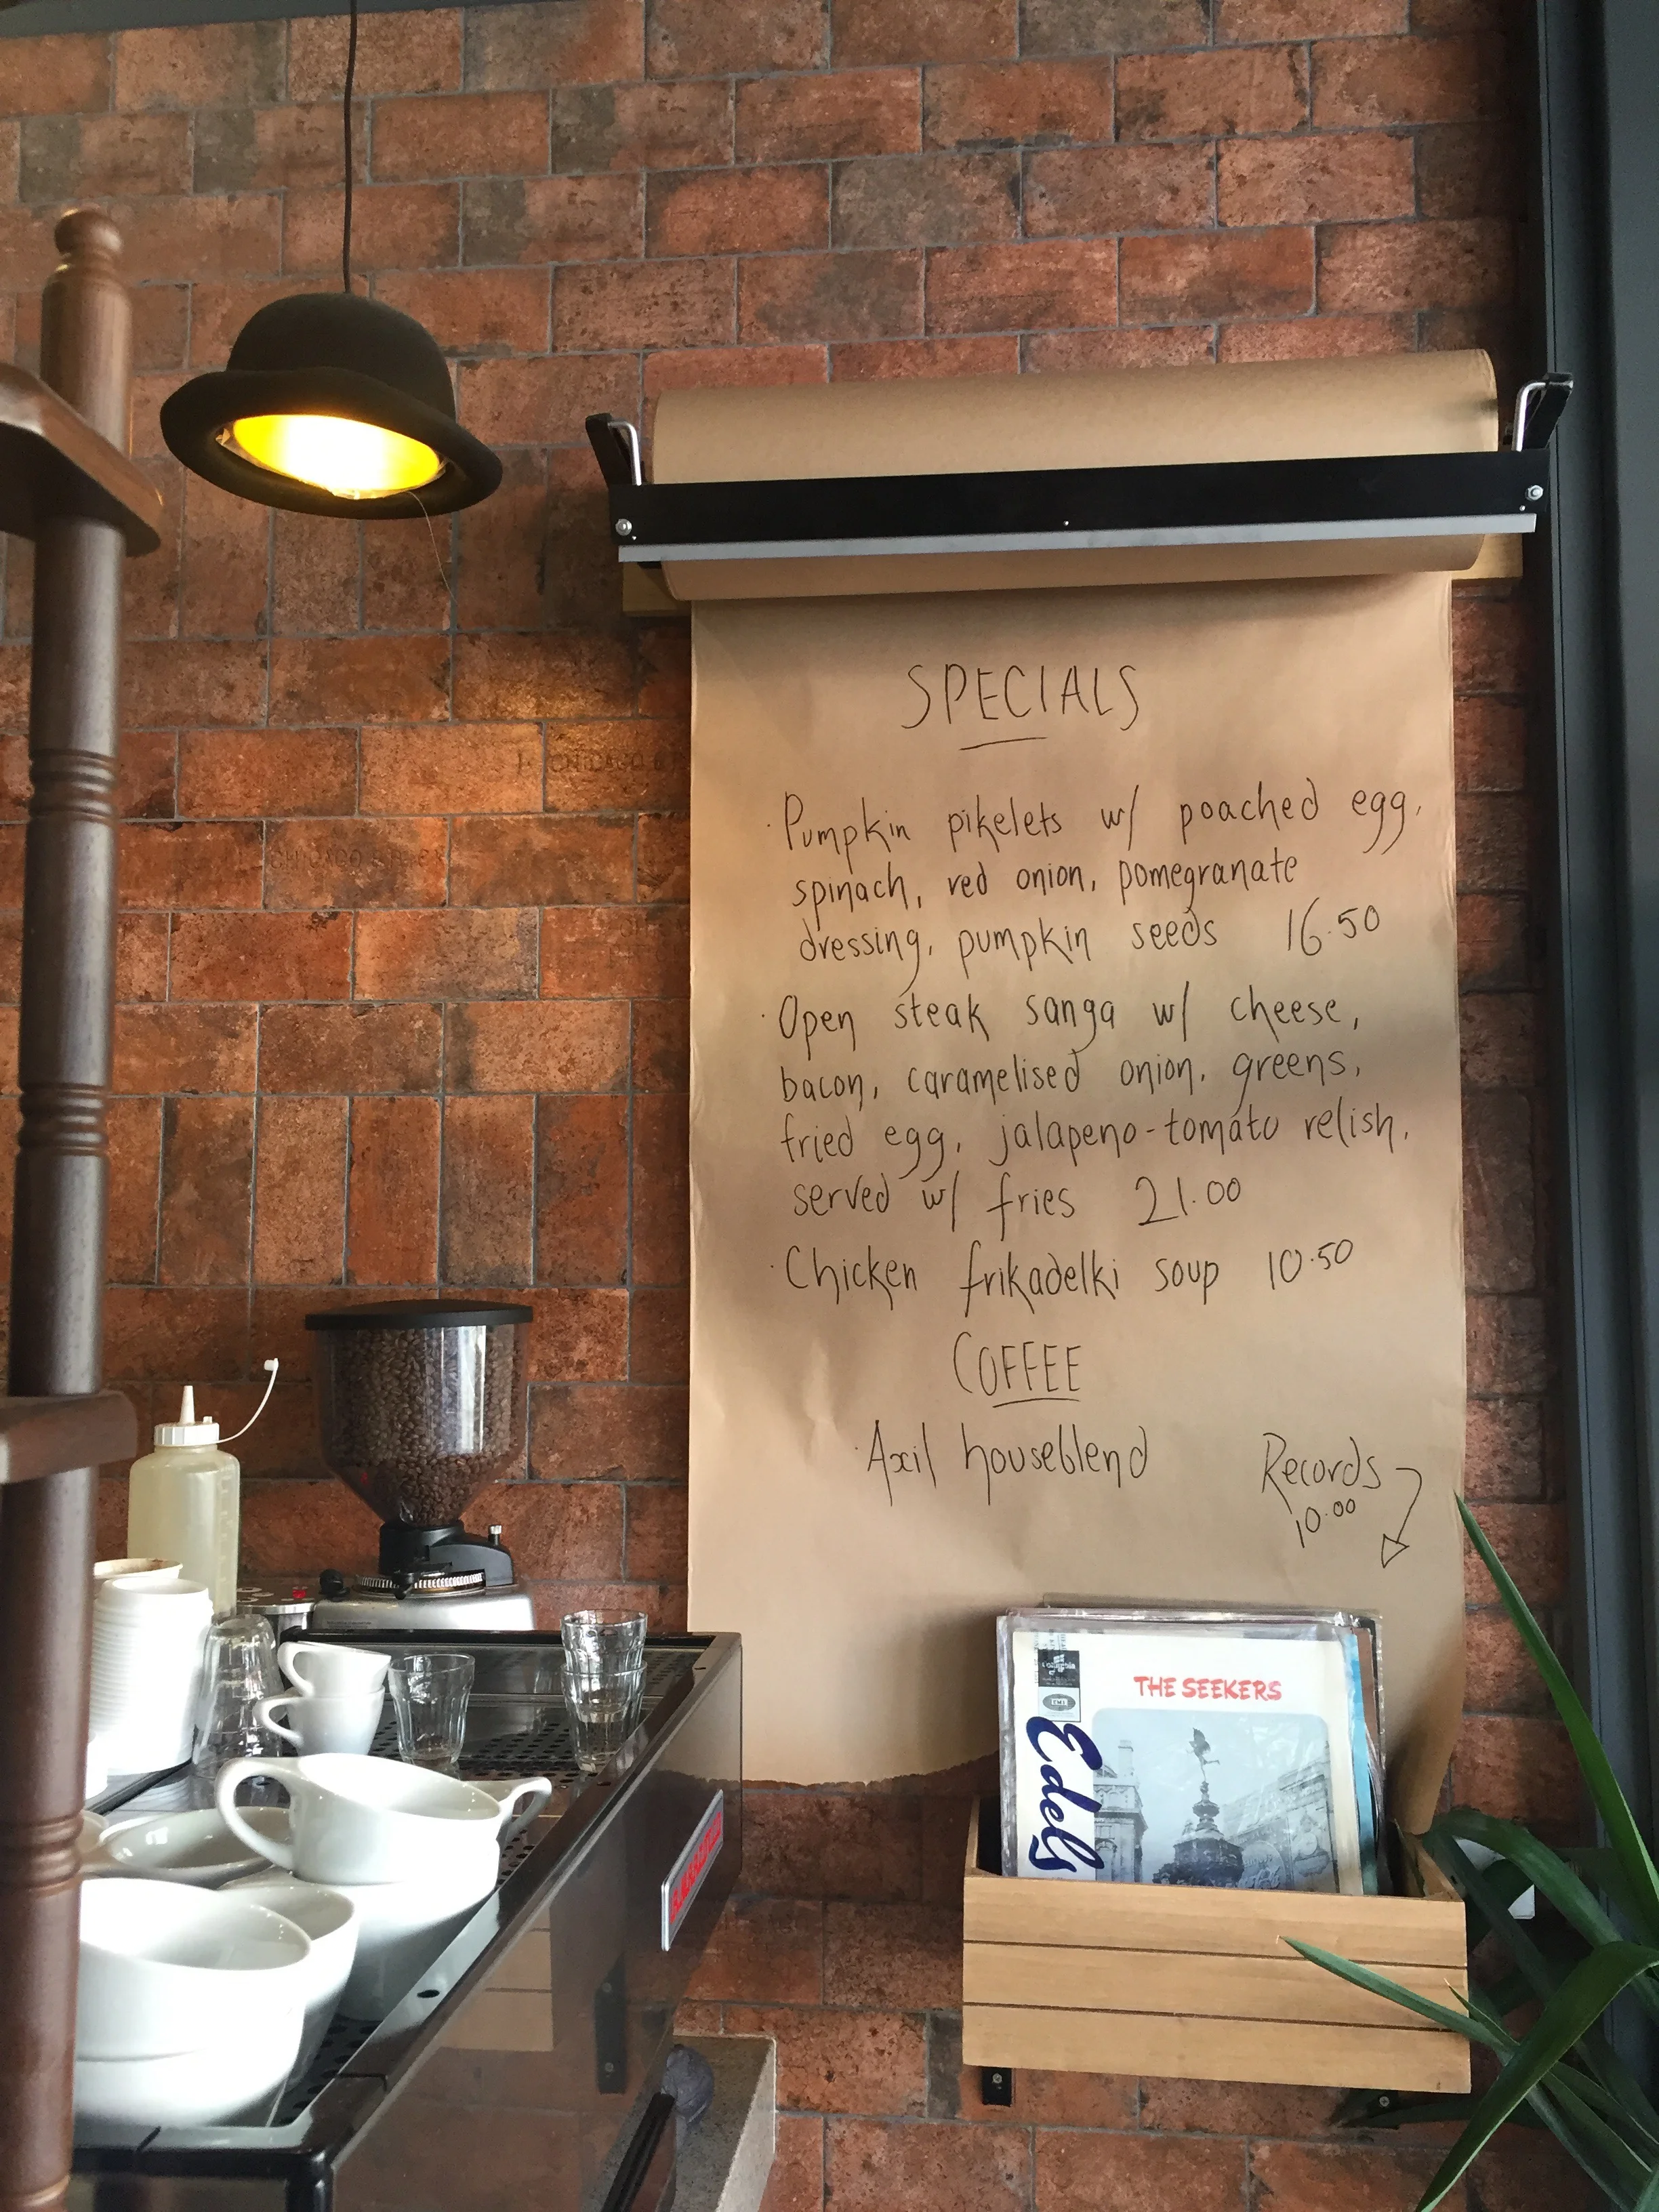 SPECIALS
· Pumpkin pikelets w/ poached egg,
spinach, red onion, pomegranate
dressing, pumpkin seeds 16.50
· Open steak sanga w/ cheese,
bacon, caramelised onion, greens,
fried egg, jalapeno-tomato relish,
served w/ fries 21.00
· Chicken frikadelki soup 10.50
COFFEE
· Axil houseblend
Records
10.00
THE SEEKERS
Columbia
EMI
Edels
CHICAGO